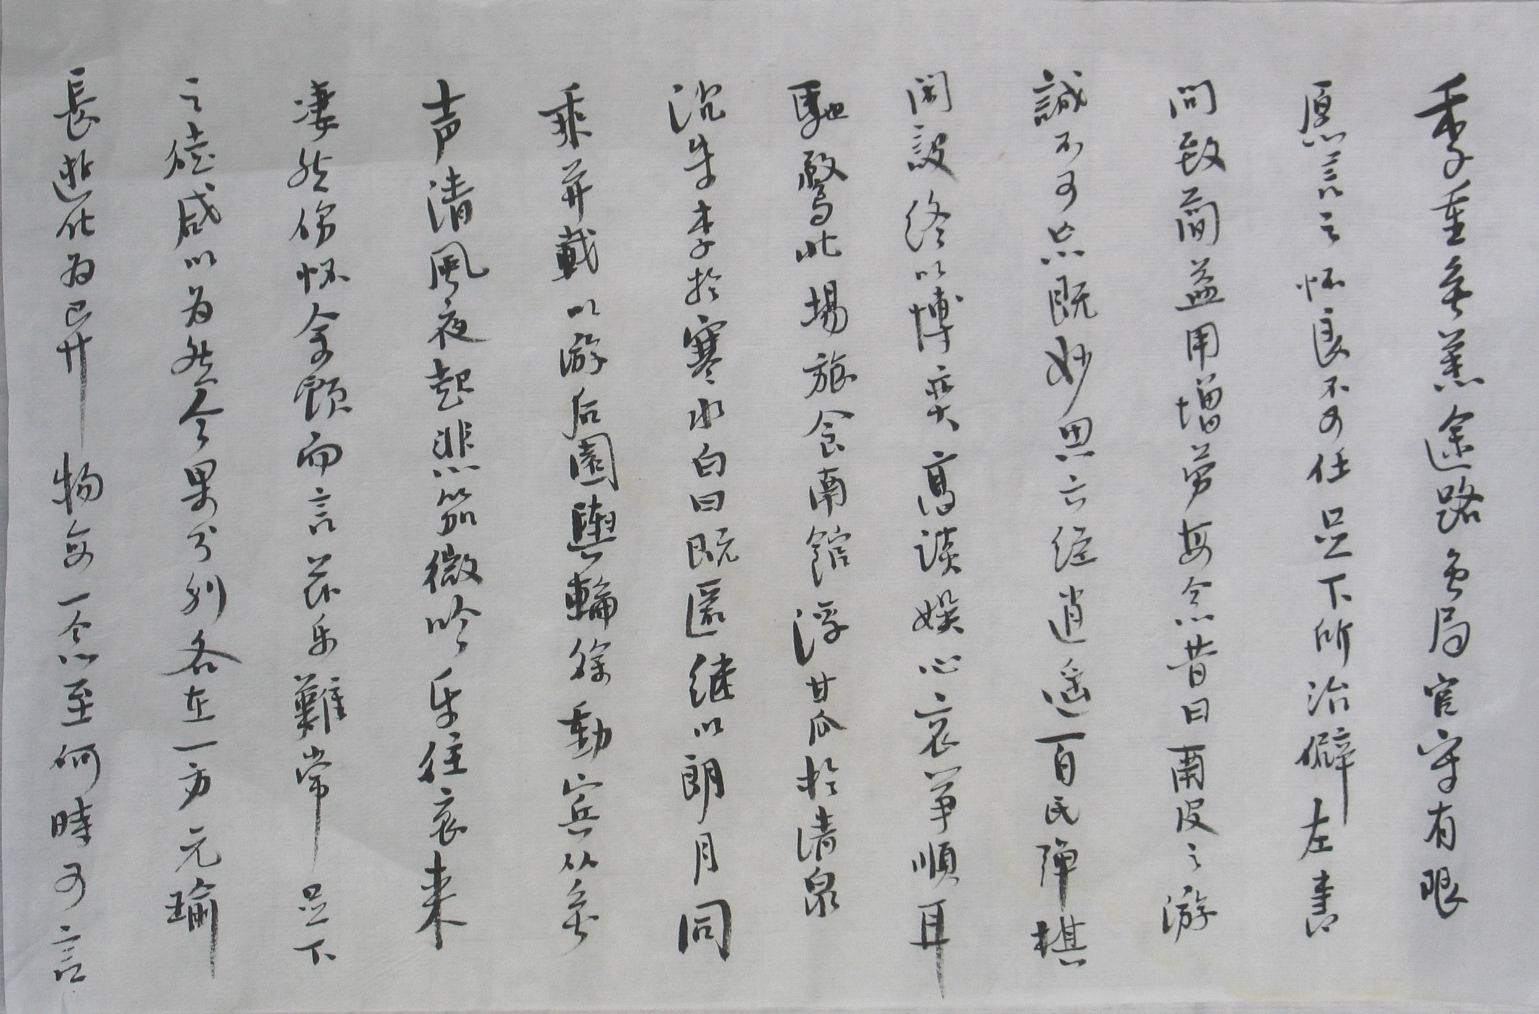 季重無恙途路雖局官守有限
愿言之怀良不可任足下所治僻左書
問致簡益用增勞每念昔日南皮之游
誠不可忘既妙思六經逍遥百氏彈棋
閑設终以博奕高談娱心哀筝順耳
馳騖北場旅食南館浮甘瓜於清泉
沉朱李於寒水白日既匿继以朗月同
乘并載以游后園輿輪徐動宾從無
声清風夜起悲笳微吟乐往哀来
凄然伤怀余顧而言茲乐難常足下
之徒咸以为然今果分别各在一方元瑜
長逝化为異物每一念至何時可言